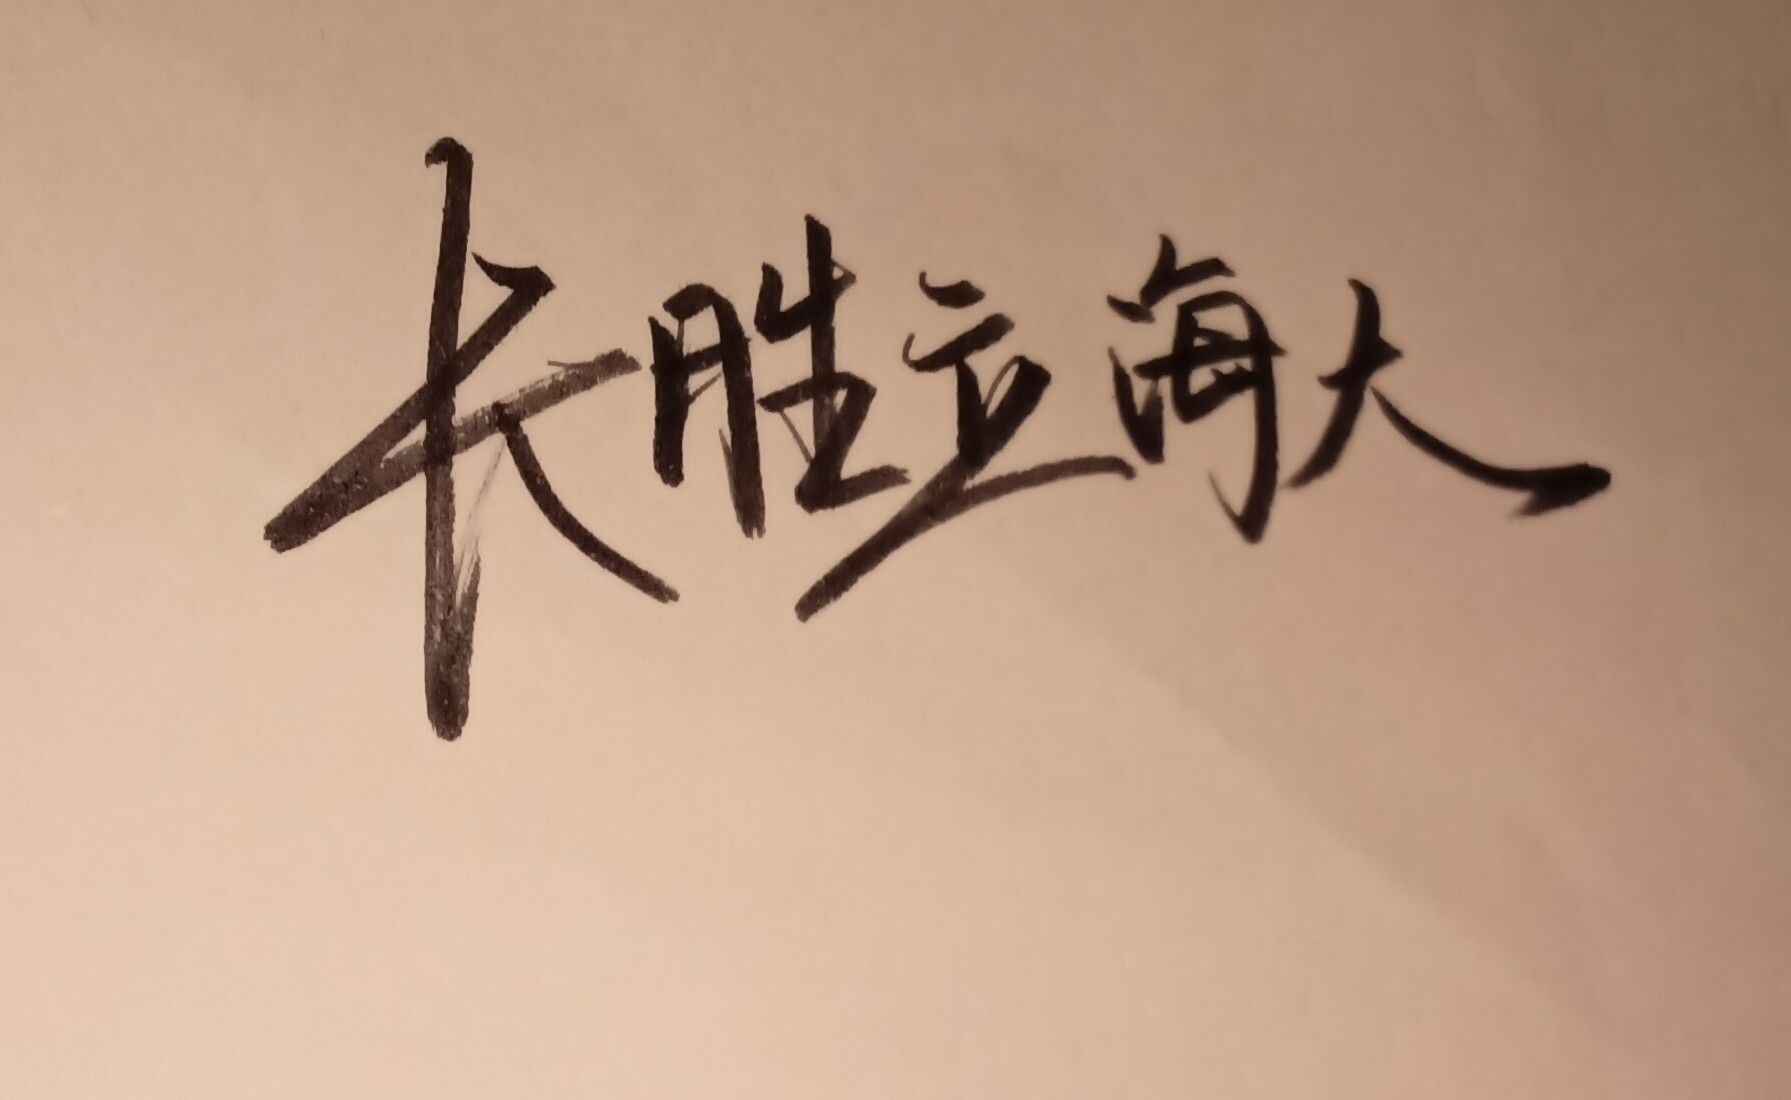 长胜立海大